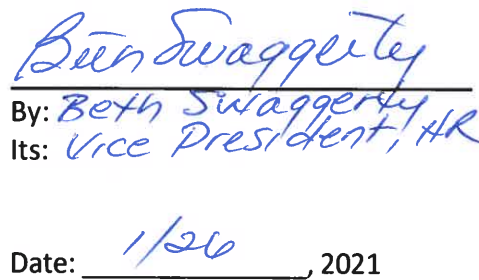 Beth Swaggerty
By: Beth Swaggerty
Its: Vice President, HR
Date: 1/26, 2021